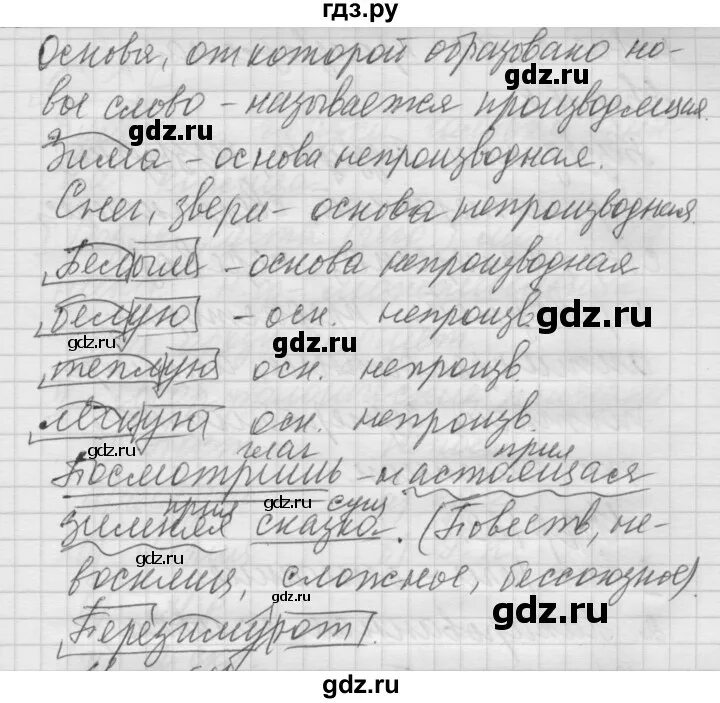 гдз.ру
Основа, от которой образовано но-
вое слово - называется производящая.
gdz.ru
gdz.ru
Зима - основа непроизводная.
Снег, звери - основа непроизводная.
gdz.ru
Белым - основа непроизводная
белую - осн. непроизв.
gdz.ru
gdz.ru
теплую осн. непроизв.
gdz.ru
осн. непроизв.
gdz.ru
глаг прил
Посмотришь - настоящая
прил gdz.ru сущ
зимняя сказка. (Повеств, не-
gdz.ru
восклиц, сложное, бессоюзное).
gdz.ru
gdz.ru
gdz.ru
gdz.ru